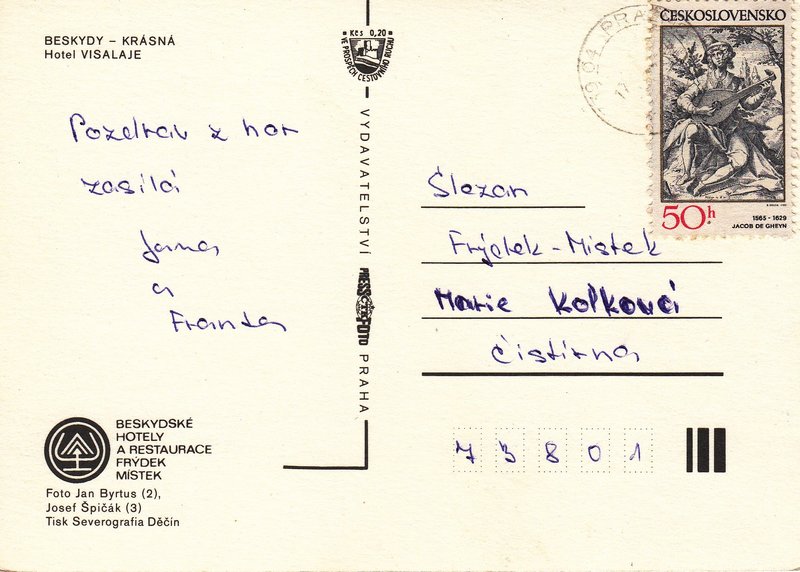 BESKYDY – KRÁSNÁ
Hotel VISALAJE
Pozdrav z hor
zasílá
Jana
a
Franta
BESKYDSKÉ
HOTELY
A RESTAURACE
FRÝDEK
MÍSTEK
Foto Jan Byrtus (2),
Josef Špičák (3)
Tisk Severografia Děčín
Kčs 0,20
VE PROSPĚCH CESTOVNÍHO RUCHU
VYDAVATELSTVÍ PRESSFOTO PRAHA
ČESKOSLOVENSKO
50h
1565 - 1629
JACOB DE GHEYN
Slezan
Frýdek-Místek
Marie Kolková
čistírna
73801